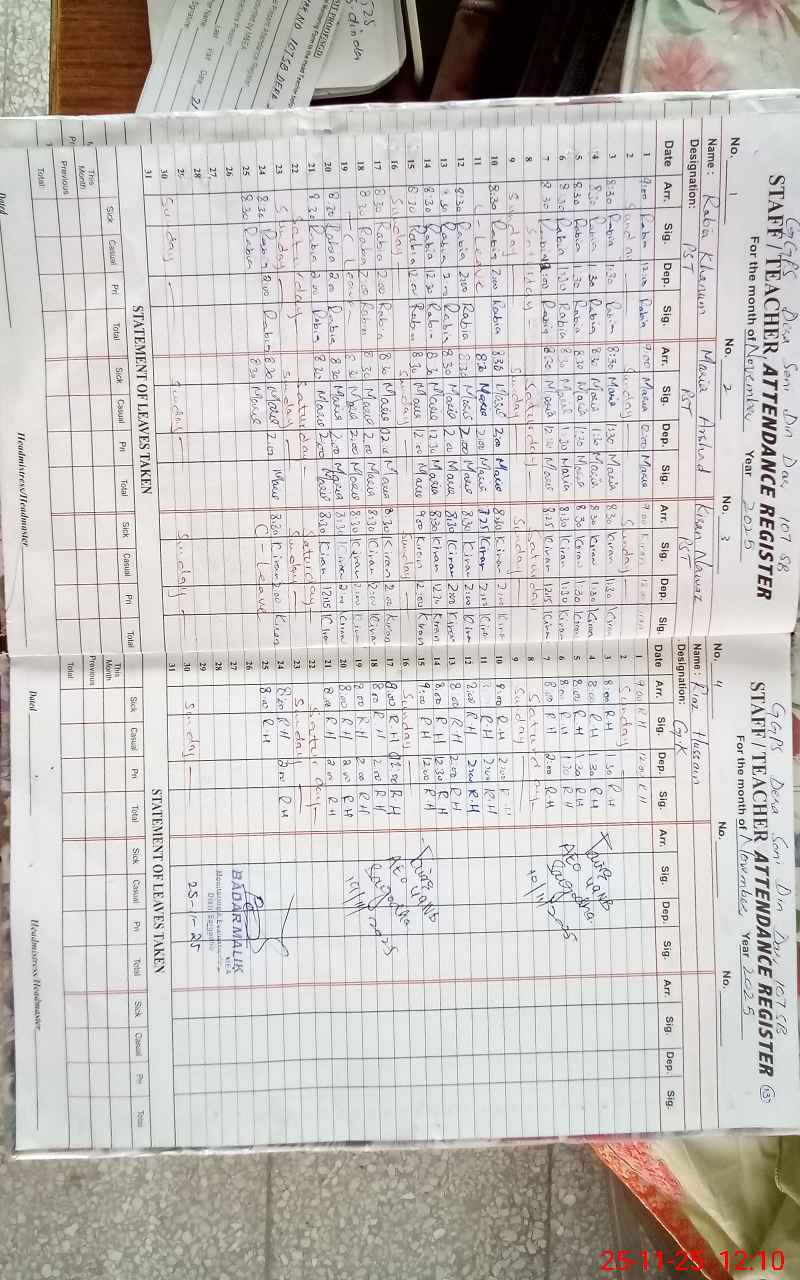 GGPS Dera Soni Din Dar 107 SB
STAFF / TEACHER ATTENDANCE REGISTER
For the month of November Year 2025
No. 1 No. 2 No. 3
Name: Rabia Khanum Maria Arshad Kiran Nawaz
Designation: PST PST PST
Date Arr. Sig. Dep. Sig. Arr. Sig. Dep. Sig. Arr. Sig. Dep. Sig.
1 9:00 Rabia 12:00 Rabia 9:00 Maria Maria 9:00 Kiran 12:00 Kiran
2 Sunday Sunday Sunday
3 8:30 Rabia 1:30 Rabia 8:30 Maria 1:30 Maria 8:30 Kiran 1:30 Kiran
4 8:30 Rabia 1:30 Rabia 8:30 Maria 1:30 Maria 8:30 Kiran 1:30 Kiran
5 8:30 Rabia 1:30 Rabia 8:30 Maria 1:30 Maria 8:30 Kiran 1:30 Kiran
6 8:30 Rabia 1:30 Rabia 8:30 Maria 1:30 Maria 8:30 Kiran 1:30 Kiran
7 8:30 Rabia Rabia 8:30 Maria Maria 8:25 Kiran 12:15 Kiran
8 Saturday Saturday Saturday
9 Sunday Sunday Sunday
10 8:30 Rabia 2:00 Rabia 8:30 Maria 2:00 Maria 8:30 Kiran 2:00 Kiran
11 C-Leave 8:30 Maria 2:00 Maria 8:25 Kiran 2:00 Kiran
12 8:30 Rabia 2:00 Rabia 8:30 Maria 2:00 Maria 8:30 Kiran 2:00 Kiran
13 8:30 Rabia 2:00 Rabia 8:30 Maria 2:00 Maria 8:30 Kiran 2:00 Kiran
14 8:30 Rabia 12:30 Rabia 8:30 Maria 12:30 Maria 8:30 Kiran 12:30 Kiran
15 8:30 Rabia 12:00 Rabia 8:30 Maria 12:00 Maria 9:00 Kiran 12:00 Kiran
16 Sunday Sunday Sunday
17 8:30 Rabia 2:00 Rabia 8:30 Maria 02:00 Maria 8:30 Kiran 2:00 Kiran
18 8:30 Rabia 2:00 Rabia 8:30 Maria 2:00 Maria 8:30 Kiran 2:00 Kiran
19 C Leave 8:30 Maria 2:00 Maria 8:30 Kiran 2:00 Kiran
20 8:30 Rabia 2:00 Rabia 8:30 Maria 2:00 Maria 8:30 Kiran 2:00 Kiran
21 8:30 Rabia 2:00 Rabia 8:30 Maria 2:00 Maria 8:30 Kiran 12:15 Kiran
22 Saturday Saturday Saturday
23 Sunday Sunday Sunday
24 8:30 Rabia 2:00 Rabia 8:30 Maria 2:00 Maria 8:30 Kiran 2:00 Kiran
25 8:30 Rabia 8:30 Maria C-Leave
26
27
28
29
30 Sunday Sunday Sunday
31
STATEMENT OF LEAVES TAKEN
Sick Casual Pri Total Sick Casual Pri Total Sick Casual Pri Total
This Month
Previous
Total
Dated Headmistress/Headmaster
GGPS Dera Soni Din Dar 107 SB
STAFF / TEACHER ATTENDANCE REGISTER 137
For the month of November Year 2025
No. 4 No. No.
Name: Riaz Hussain
Designation: G/K
Date Arr. Sig. Dep. Sig. Arr. Sig. Dep. Sig. Arr. Sig. Dep. Sig.
1 9:00 R.H 12:00 R.H
2 Sunday
3 8:00 R.H 1:30 R.H
4 8:00 R.H 1:30 R.H
5 8:00 R.H 1:30 R.H
6 8:00 R.H 1:30 R.H
7 8:00 R.H 2:00 R.H
8 Saturday
9 Sunday
10 9:00 R.H 2:00 R.H
11 R.H 2:00 R.H
12 8:00 R.H 2:00 R.H
13 8:00 R.H 2:00 R.H
14 8:00 R.H 12:30 R.H
15 9:00 R.H 12:00 R.H
16 Sunday
17 8:00 R.H 02:00 R.H
18 8:00 R.H 2:00 R.H
19 8:00 R.H 2:00 R.H
20 8:00 R.H 2:00 R.H
21 8:00 R.H 2:00 R.H
22 Saturday
23 Sunday
24 8:00 R.H 2:00 R.H
25 8:00 R.H
26
27
28
29
30 Sunday
31
AEO
Sargodha
10/11/2025
AEO
Sargodha
19/11/2025
BADAR MALIK
MEA
Distt Sargodha
25-11-25
STATEMENT OF LEAVES TAKEN
Sick Casual Pri Total Sick Casual Pri Total Sick Casual Pri Total
This Month
Previous
Total
Dated Headmistress/Headmaster
25-11-25 12:10